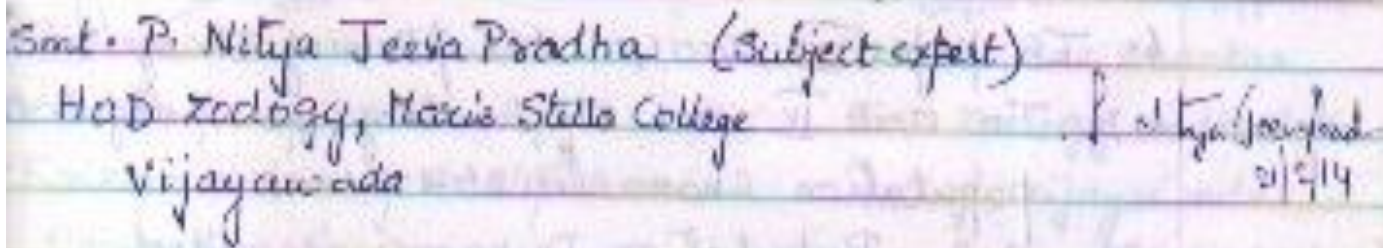 Smt. P. Nitya Jeeva Pradha (Subject expert)
HOD zoology, Maris Stella College
Vijayawada
21/2/14